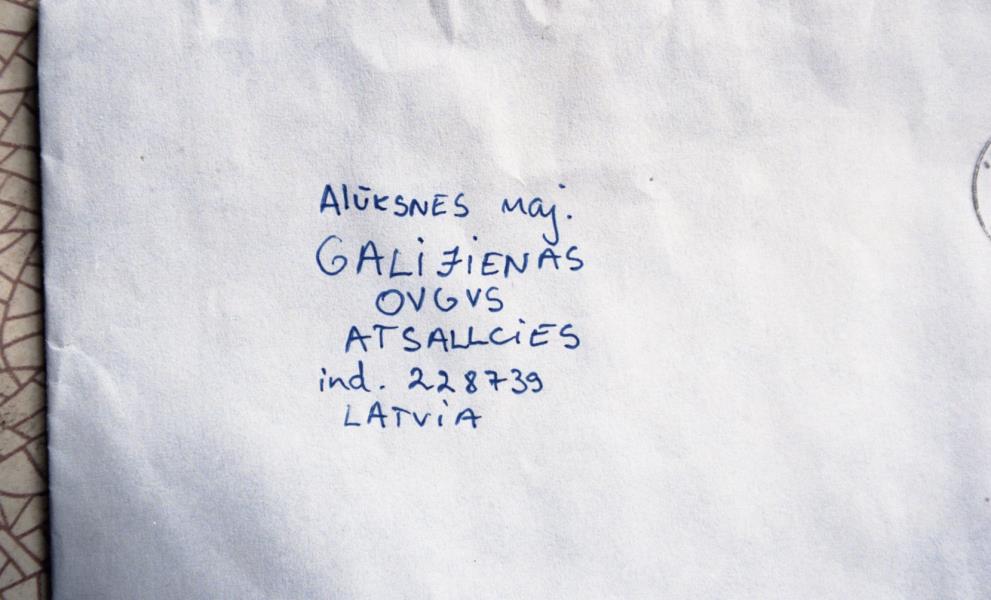 Alūksnes maj.
GALiJiENAS
OVGVS
ATSALLCiES
ind. 228739
LATViA